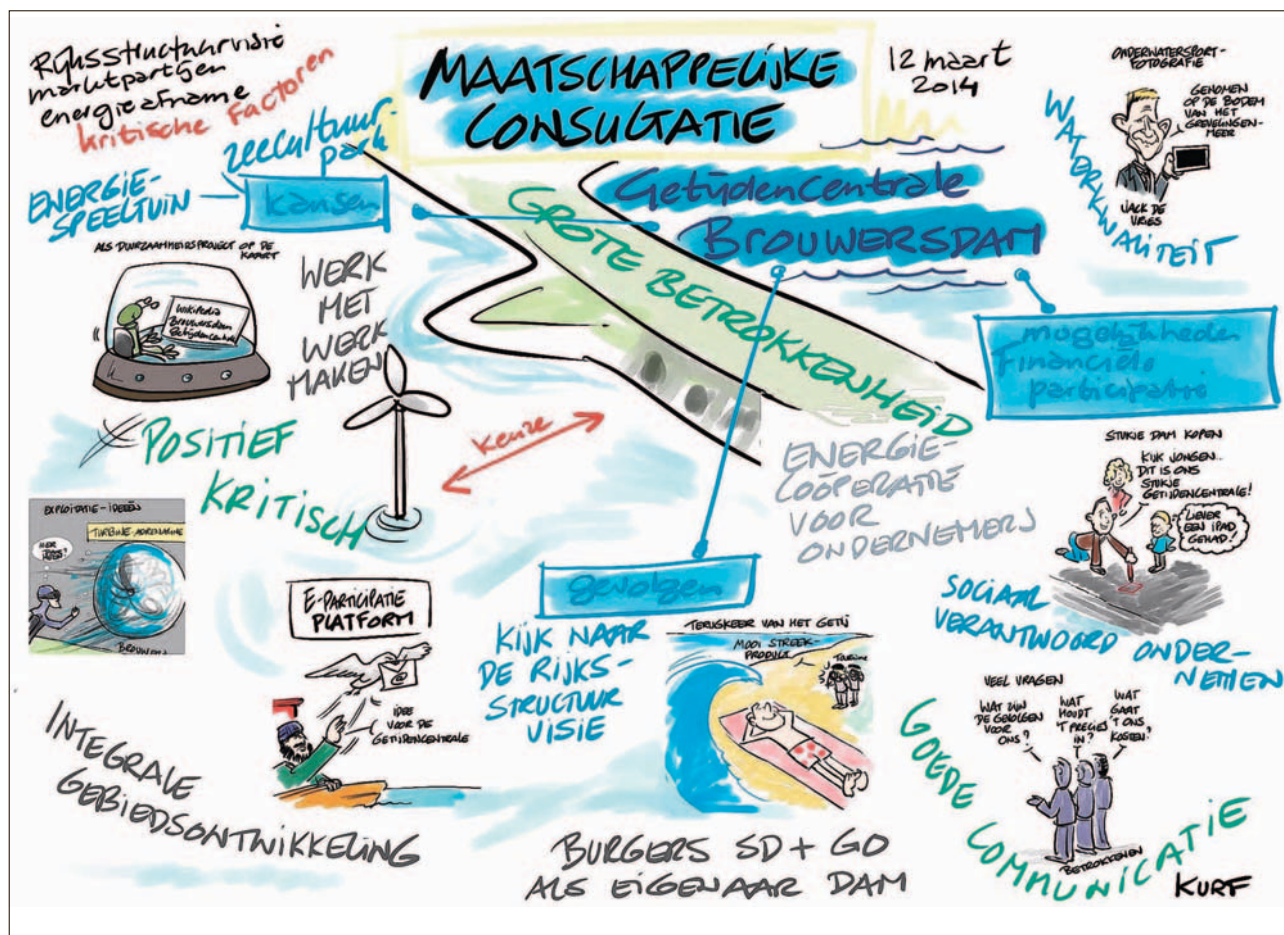 Rijksstructuurvisie
marktpartijen
energieafname
kritische factoren
MAATSCHAPPELIJKE
CONSULTATIE
12 maart
2014
ONDERWATERSPORT-
FOTOGRAFIE
GENOMEN
OP DE BODEM
VAN HET
GREVELINGEN-
MEER
JACK DE
VRIES
WATERKWALITEIT
zeecultuur-
park
ENERGIE-
SPEELTUIN
kansen
Getijdencentrale
BROUWERSDAM
GROTE BETROKKENHEID
ALS DUURZAAMHEIDSPROJECT OP DE
KAART
Wikipedia
Brouwersdam
Getijdencentrale
WERK
MET
WERK
MAKEN
mogelijkheden
Financiële
participatie
POSITIEF
KRITISCH
keuze
ENERGIE-
COÖPERATIE
VOOR
ONDERNEMERS
STUKJE DAM KOPEN
KIJK JONGEN..
DIT IS ONS
STUKJE
GETIJDENCENTRALE!
LIEVER
EEN IPAD
GEHAD!
SOCIAAL
VERANTWOORD ONDER-
NEMEN
EXPLOITATIE-IDEEËN
TURBINE-ADRENALINE
HIER
E-PARTICIPATIE
PLATFORM
@
IDEE
VOOR DE
GETIJDENCENTRALE
gevolgen
KIJK NAAR
DE RIJKS-
STRUCTUUR
VISIE
TERUGKEER VAN HET GETIJ
MOOI STREEK-
PRODUCT
VEEL VRAGEN
WAT ZIJN
DE GEVOLGEN
VOOR
ONS?
WAT
HOUDT
'T PRECIES
IN?
WAT
GAAT
'T ONS
KOSTEN?
BETROKKENEN
GOEDE COMMUNICATIE
INTEGRALE
GEBIEDSONTWIKKELING
BURGERS SD + GO
ALS EIGENAAR DAM
KURF